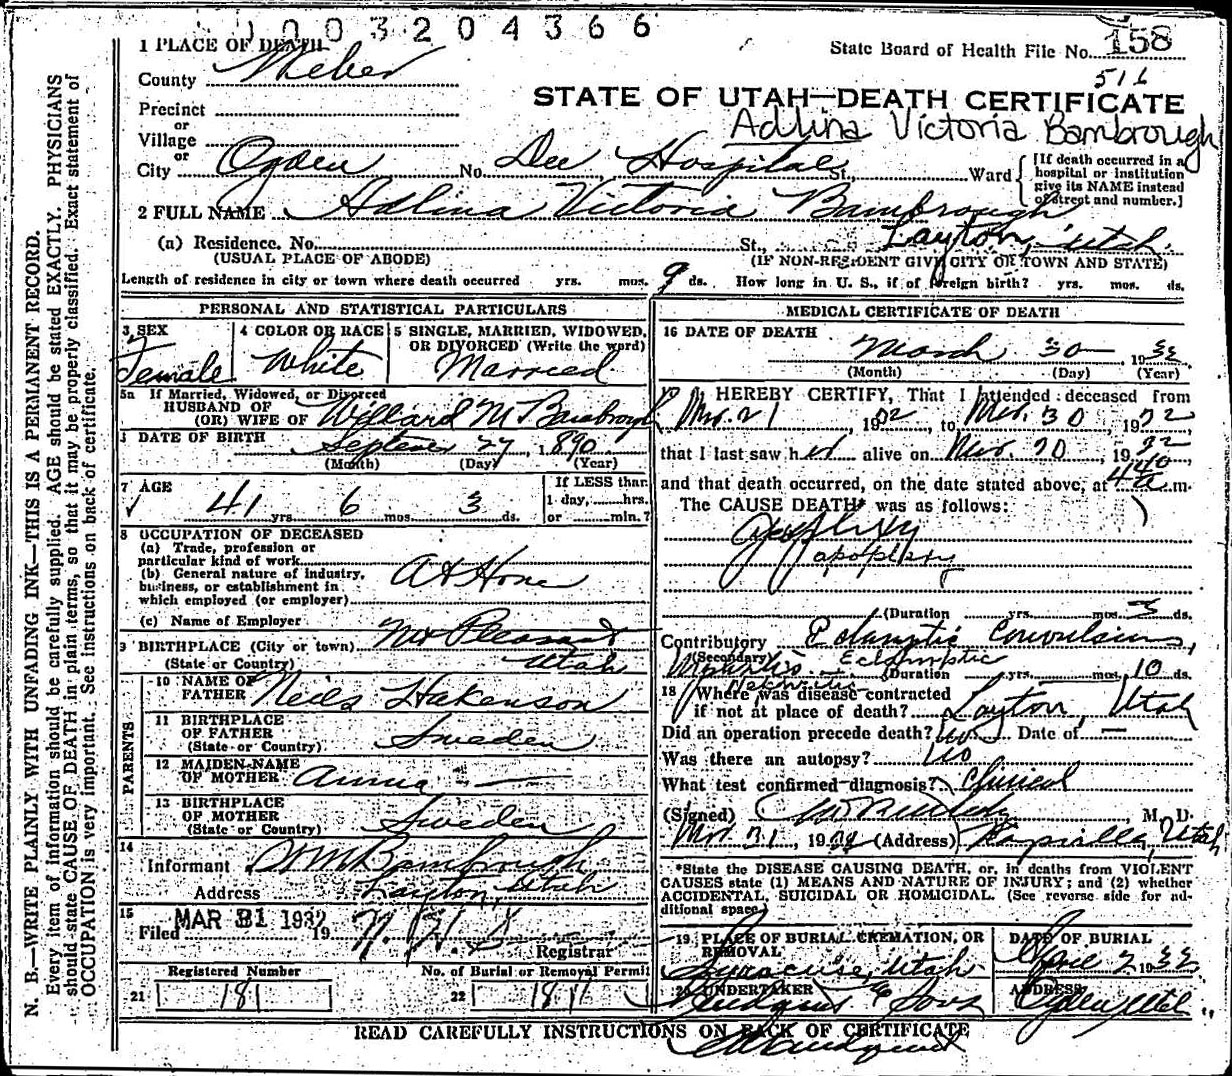 1003204366
1 PLACE OF DEATH
State Board of Health File No. 158
County Weber
516
STATE OF UTAH—DEATH CERTIFICATE
Precinct
or
Village
or
Adlina Victoria Bambrough
City Ogden No. Dee Hospital St., Ward
[If death occurred in a hospital or institution give its NAME instead of street and number.]
2 FULL NAME Adlina Victoria Bambrough
(a) Residence. No. St., Layton, Utah.
(USUAL PLACE OF ABODE) (IF NON-RESIDENT GIVE CITY OR TOWN AND STATE)
Length of residence in city or town where death occurred yrs. mos. 9 ds. How long in U. S., if of foreign birth? yrs. mos. ds.
PERSONAL AND STATISTICAL PARTICULARS
3 SEX
Female
4 COLOR OR RACE
White
5 SINGLE, MARRIED, WIDOWED, OR DIVORCED (Write the word)
Married
5a If Married, Widowed, or Divorced
HUSBAND OF
(OR) WIFE OF Willard M Bambrough
DATE OF BIRTH September 27, 1890
(Month) (Day) (Year)
7 AGE
41 yrs. 6 mos. 3 ds.
If LESS than
1 day, hrs.
or min.?
8 OCCUPATION OF DECEASED
(a) Trade, profession or
particular kind of work
(b) General nature of industry,
business, or establishment in
which employed (or employer)
At Home
(c) Name of Employer
9 BIRTHPLACE (City or town) Mt Pleasant
(State or Country) Utah
PARENTS
10 NAME OF
FATHER Neils Hakenson
11 BIRTHPLACE
OF FATHER
(State or Country) Sweden
12 MAIDEN NAME
OF MOTHER Anna —
13 BIRTHPLACE
OF MOTHER
(State or Country) Sweden
14
Informant W M Bambrough
Address Layton, Utah
15
Filed MAR 31 1932 19 Registrar
Registered Number
21 181
No. of Burial or Removal Permit
22 1811
MEDICAL CERTIFICATE OF DEATH
16 DATE OF DEATH
March 30 1932
(Month) (Day) (Year)
17 I HEREBY CERTIFY, That I attended deceased from
Mar. 21, 1932, to Mar. 30, 1932
that I last saw her alive on Mar. 30, 1932
and that death occurred, on the date stated above, at 4 40 a m.
The CAUSE DEATH* was as follows:
Apoplexy
apoplexy
(Duration yrs. mos. 3 ds.
Contributory Eclamptic Convulsions,
(Secondary) Eclamptic
Nephritis (Duration yrs. mos. 10 ds.
Nephritis
18 Where was disease contracted
if not at place of death? Layton, Utah
Did an operation precede death? Date of —
Was there an autopsy? No
What test confirmed diagnosis? Clinical
(Signed) M. D.
Mar. 31, 1932 (Address) Kaysville, Utah
*State the DISEASE CAUSING DEATH, or, in deaths from VIOLENT
CAUSES state (1) MEANS AND NATURE OF INJURY; and (2) whether
ACCIDENTAL, SUICIDAL OR HOMICIDAL. (See reverse side for ad-
ditional space.)
19 PLACE OF BURIAL CREMATION, OR
REMOVAL
Syracuse, Utah
DATE OF BURIAL
2 1932
20 UNDERTAKER
Lindquist & Sons
ADDRESS
Ogden Utah
READ CAREFULLY INSTRUCTIONS ON BACK OF CERTIFICATE
Lindquist
N. B.—WRITE PLAINLY WITH UNFADING INK—THIS IS A PERMANENT RECORD.
Every item of information should be carefully supplied. AGE should be stated EXACTLY. PHYSICIANS
should state CAUSE OF DEATH in plain terms, so that it may be properly classified. Exact statement of
OCCUPATION is very important. See instructions on back of certificate.